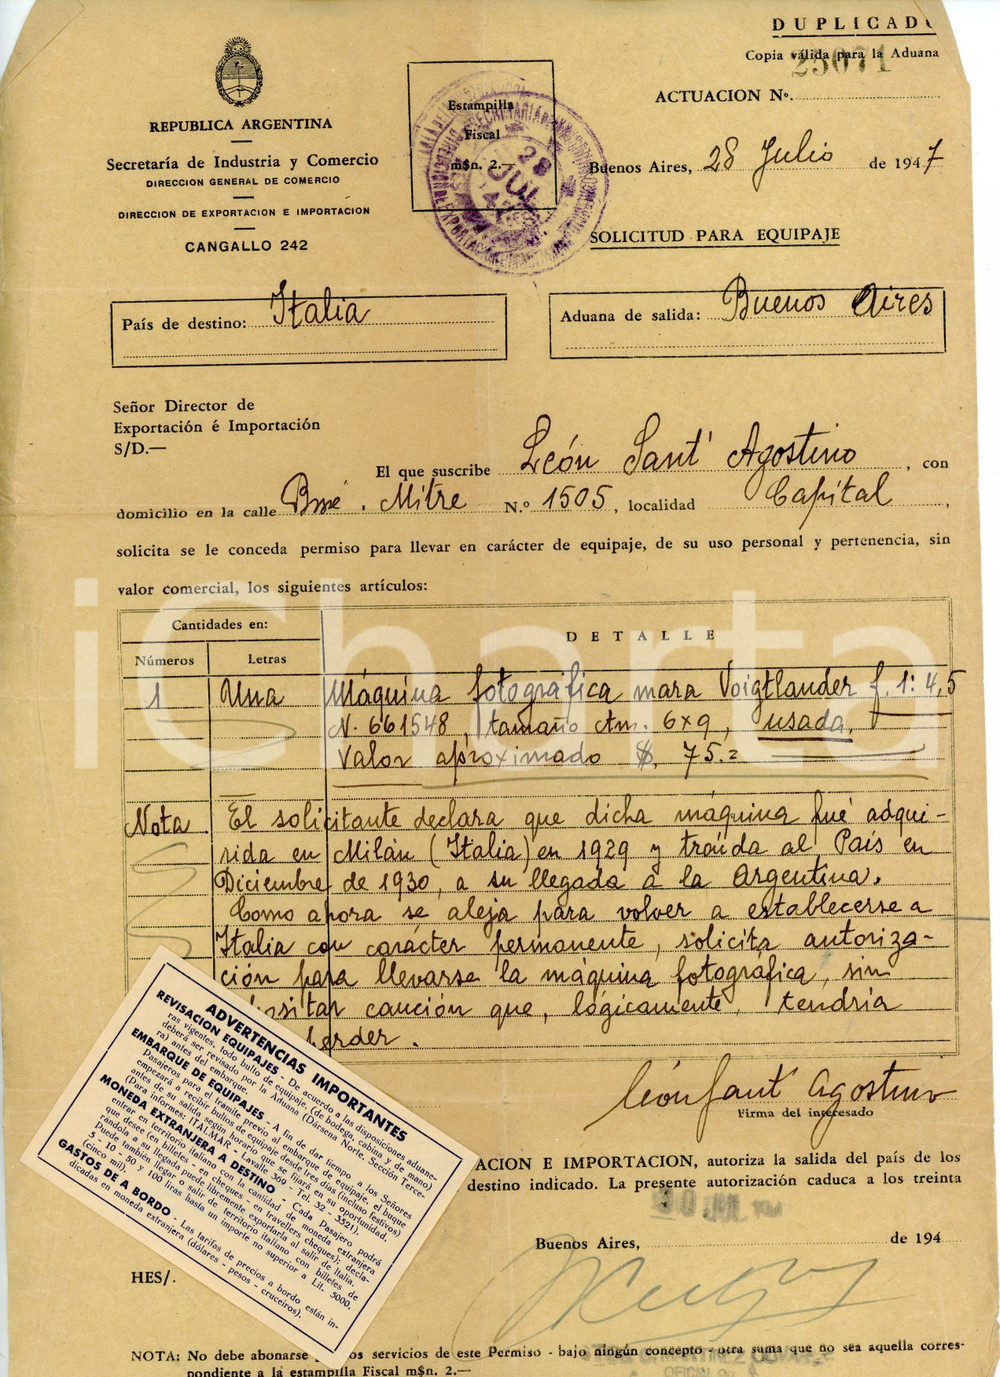 DUPLICADO
Copia válida para la Aduana
25071
ACTUACION Nº.
REPUBLICA ARGENTINA
Secretaría de Industria y Comercio
DIRECCION GENERAL DE COMERCIO
DIRECCION DE EXPORTACION E IMPORTACION
CANGALLO 242
Estampilla
Fiscal
m$n. 2.—
28 JUL 1947
Buenos Aires, 28 Julio de 1947
SOLICITUD PARA EQUIPAJE
País de destino: Italia
Aduana de salida: Buenos Aires
Señor Director de
Exportación é Importación
S/D.—
El que suscribe León Sant' Agostino, con
domicilio en la calle Bmé. Mitre N.º 1505, localidad Capital,
solicita se le conceda permiso para llevar en carácter de equipaje, de su uso personal y pertenencia, sin
valor comercial, los siguientes artículos:
iCharta
Cantidades en:
DETALLE
Números Letras
1 Una Máquina fotográfica mara Voigtlander f. 1:4,5
N. 661548, tamaño cm. 6x9, usada.
Valor aproximado $. 75.=
Nota El solicitante declara que dicha máquina fué adqui-
rida en Milán (Italia) en 1929 y traída al País en
Diciembre de 1930, a su llegada a la Argentina.
Como ahora se aleja para volver a establecerse a
Italia con carácter permanente, solicita autoriza-
ción para llevarse la máquina fotográfica, sin
caución que, lógicamente, tendría
León Sant' Agostino
Firma del interesado
ACION E IMPORTACION, autoriza la salida del país de los
destino indicado. La presente autorización caduca a los treinta
Buenos Aires, de 194
HES/.
NOTA: No debe abonarse los servicios de este Permiso - bajo ningún concepto - otra suma que no sea aquella corres-
pondiente a la estampilla Fiscal m$n. 2.—
ADVERTENCIAS IMPORTANTES
REVISACION EQUIPAJES - De acuerdo a las disposiciones aduane-
ras vigentes, todo bulto de equipaje, (de bodega, cabina y de mano)
deberá ser revisado por la Aduana (Dársena Norte, Sección Terce-
ra) antes del embarque.
EMBARQUE DE EQUIPAJES - A fin de dar tiempo, a los Señores
Pasajeros para el tramite previo al embarque de equipaje, el buque
empezará a recibir bultos de equipaje desde tres días (incluso festivos)
antes de su salida según horario que se fijará en su oportunidad.
(Para informes: ITALMAR - Lavalle 369 - Tel. 32 - 3521).
MONEDA EXTRANJERA A DESTINO - Cada Pasajero podrá
entrar en territorio italiano con la cantidad de moneda extranjera
que desee (en billetes - en cheques - en travellers cheques); decla-
rándola a su llegada podrá libremente exportarla al salir de Italia.
Puede también llegar o salir de territorio italiano con billetes de
5 - 10 - 50 y 100 liras hasta un importe no superior a Lit. 5000,
(cinco mil).
GASTOS DE A BORDO - Las tarifas de precios a bordo están in-
dicadas en moneda extranjera (dólares - pesos - cruceiros).